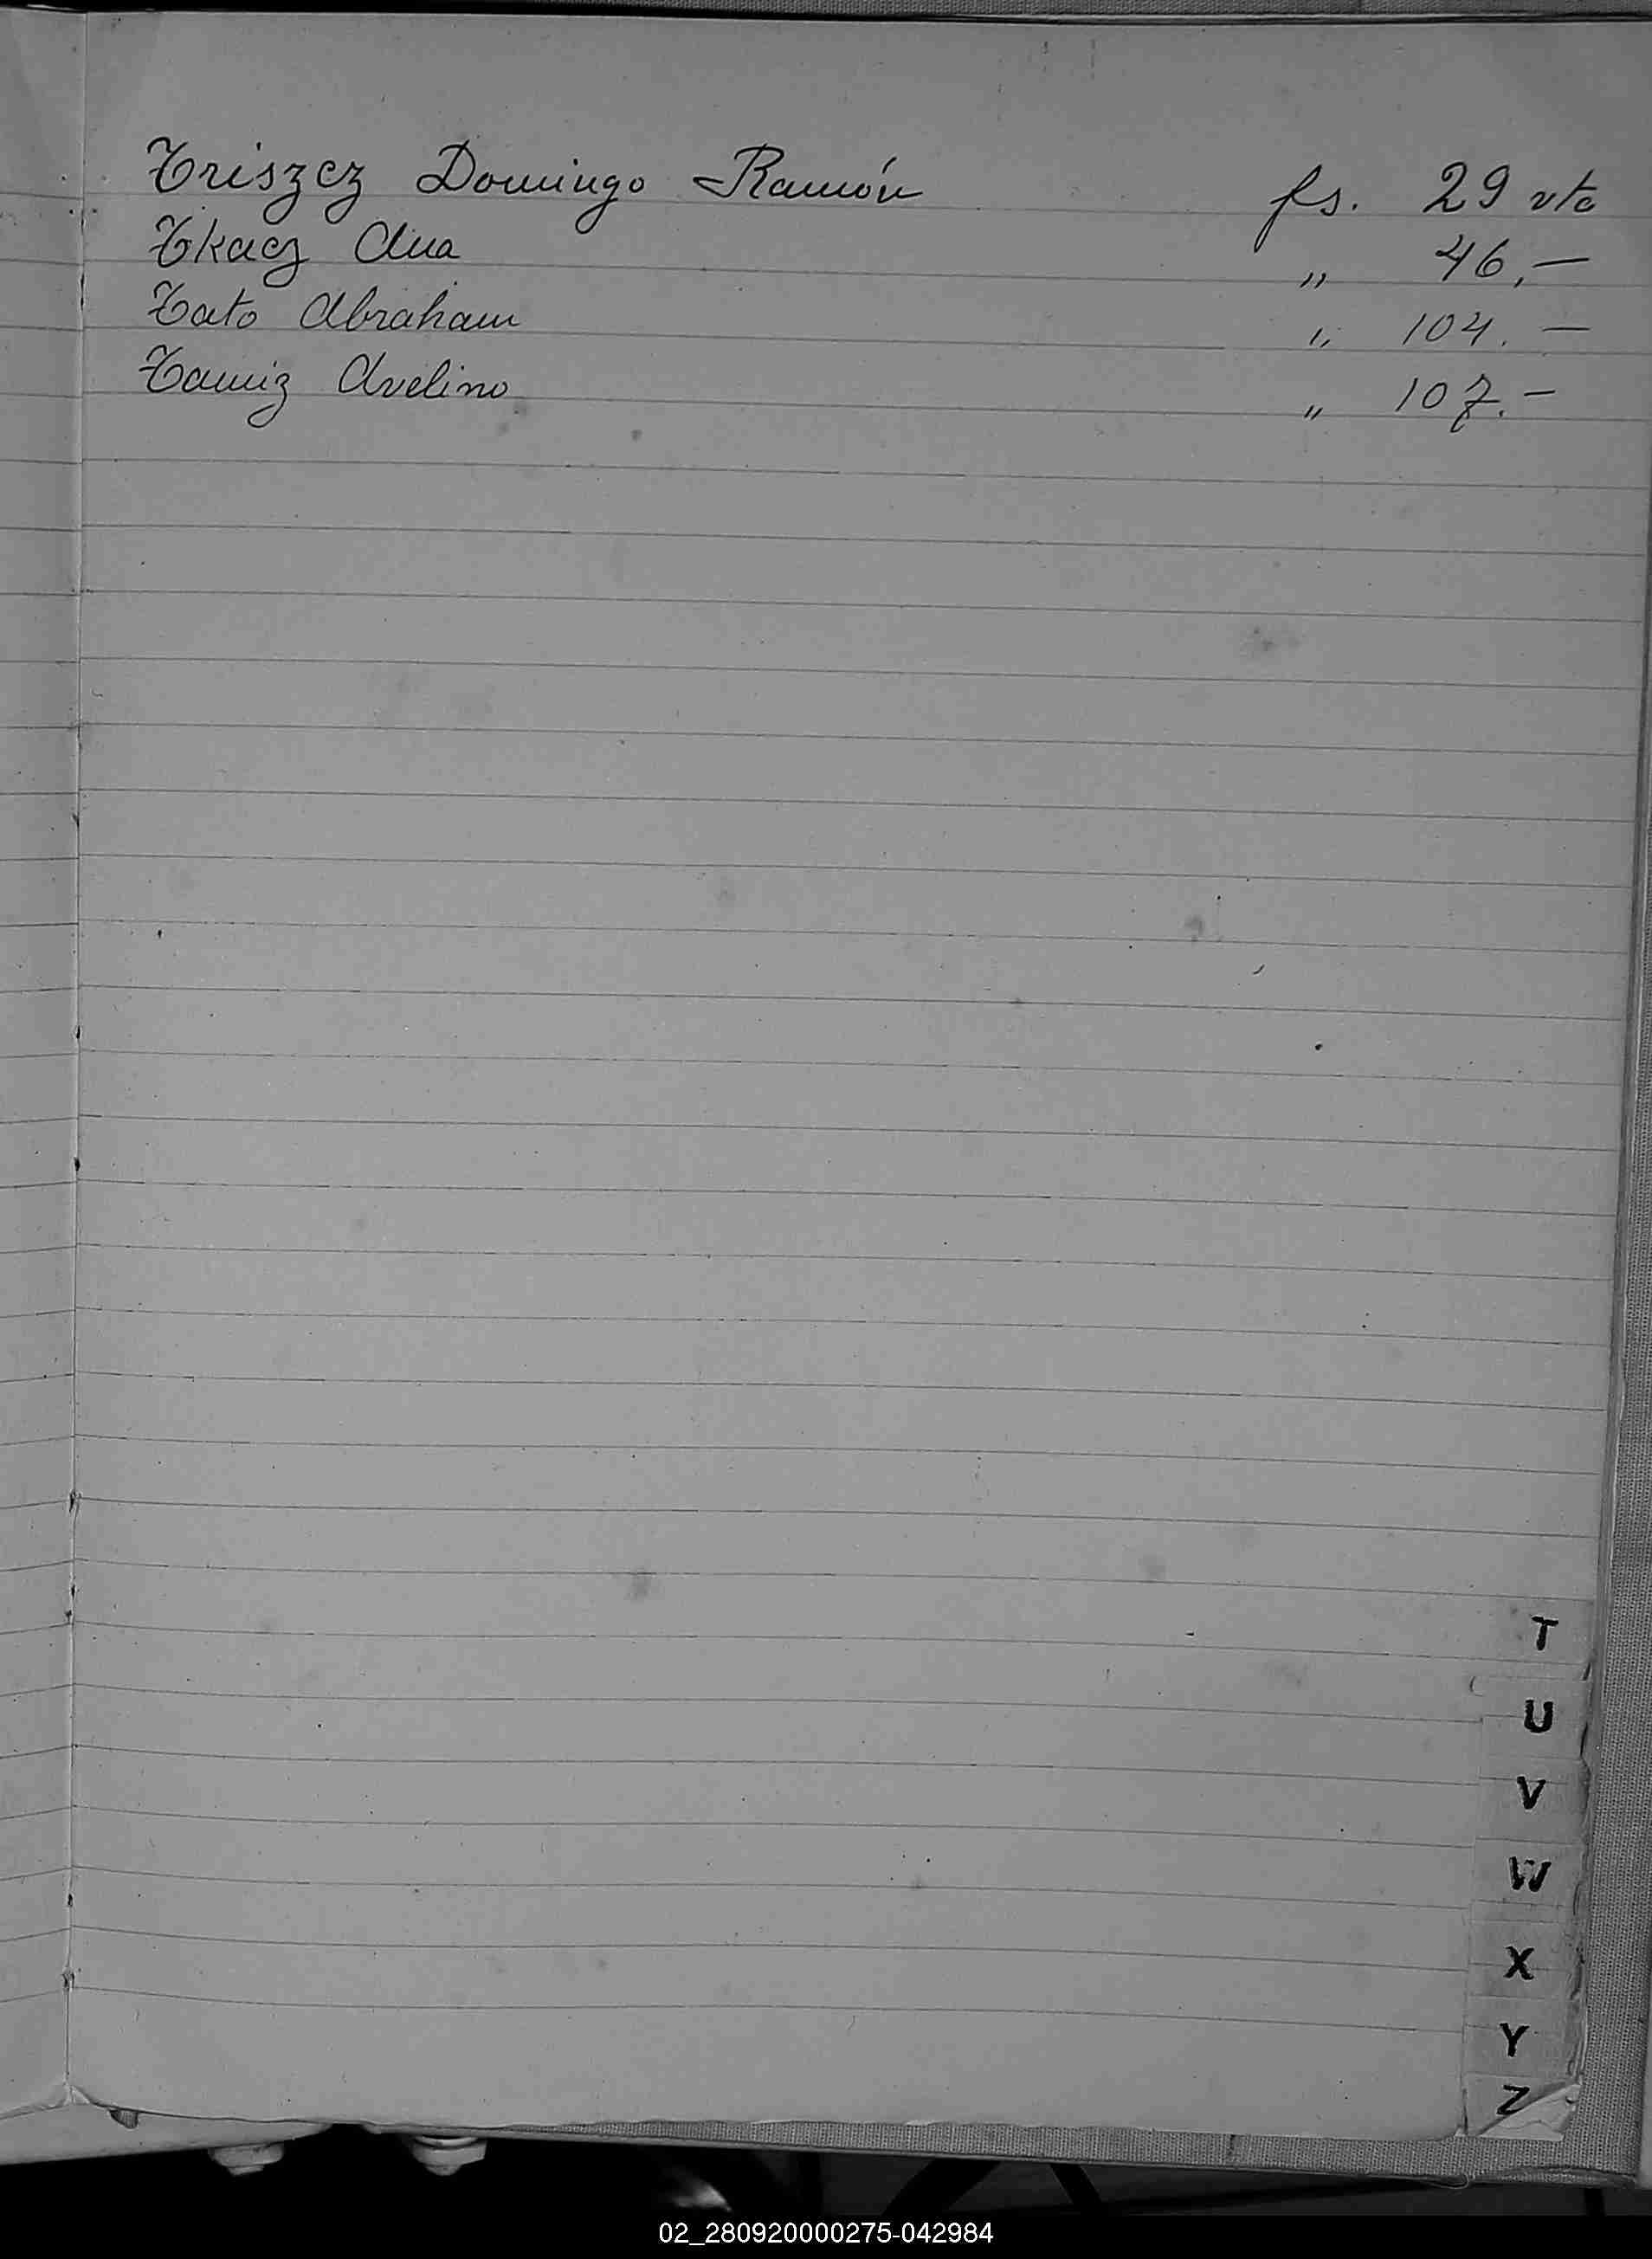 Triszcz Domingo Ramón fs. 29 vta
Tkacz Ana " 46.—
Tato Abraham " 104. —
Tamiz Avelino " 107.—
T
U
V
W
X
Y
Z
02_280920000275-042984